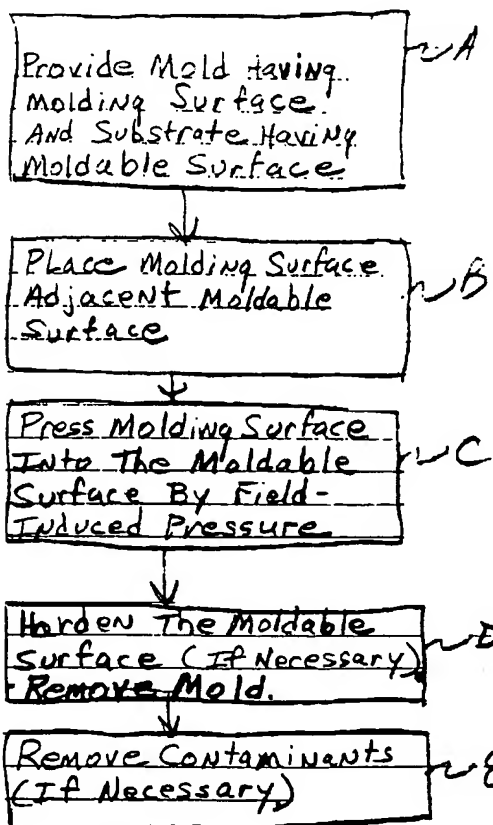 A
Provide Mold Having
Molding Surface
And Substrate Having
Moldable Surface
Place Molding Surface
Adjacent Moldable
Surface
B
Press Molding Surface
Into The Moldable
Surface By Field-
Induced Pressure
C
Harden The Moldable
Surface (If Necessary).
Remove Mold.
Remove Contaminants
(If Necessary)
E